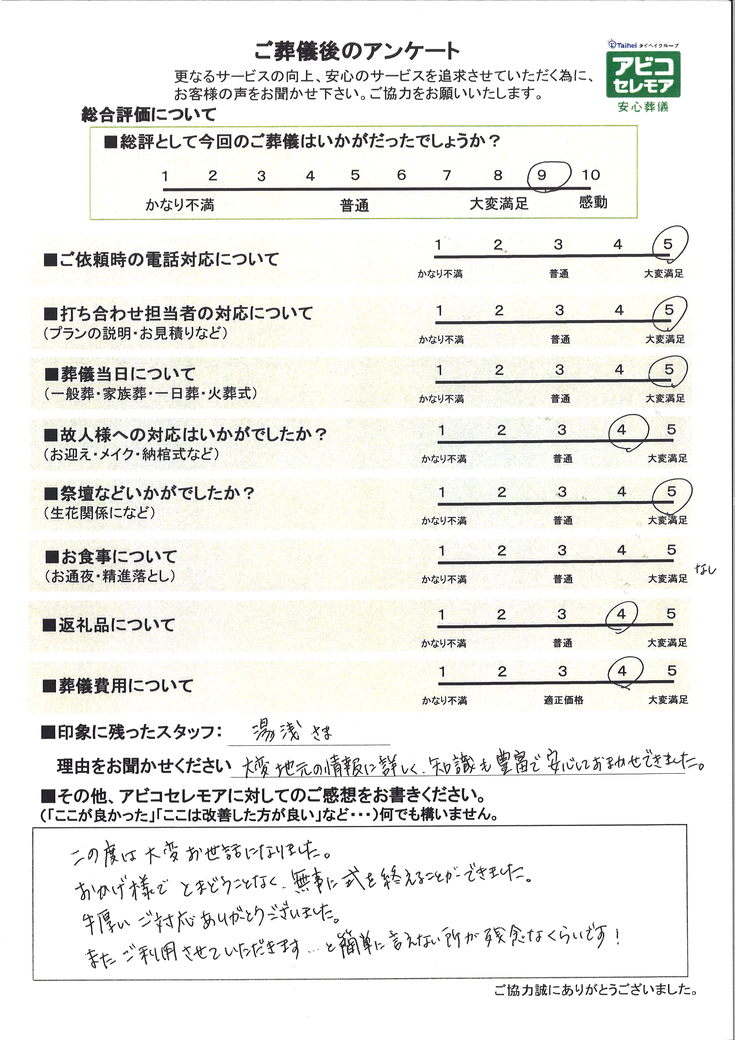 ご葬儀後のアンケート
Taihei タイヘイグループ
アビコ
セレモア
安心葬儀
更なるサービスの向上、安心のサービスを追求させていただく為に、
お客様の声をお聞かせ下さい。ご協力をお願いいたします。
総合評価について
■総評として今回のご葬儀はいかがだったでしょうか？
1 2 3 4 5 6 7 8 9 10
かなり不満 普通 大変満足 感動
■ご依頼時の電話対応について
1 2 3 4 5
かなり不満 普通 大変満足
■打ち合わせ担当者の対応について
(プランの説明・お見積りなど)
1 2 3 4 5
かなり不満 普通 大変満足
■葬儀当日について
(一般葬・家族葬・一日葬・火葬式)
1 2 3 4 5
かなり不満 普通 大変満足
■故人様への対応はいかがでしたか？
(お迎え・メイク・納棺式など)
1 2 3 4 5
かなり不満 普通 大変満足
■祭壇などいかがでしたか？
(生花関係になど)
1 2 3 4 5
かなり不満 普通 大変満足
■お食事について
(お通夜・精進落とし)
1 2 3 4 5
かなり不満 普通 大変満足 なし
■返礼品について
1 2 3 4 5
かなり不満 普通 大変満足
■葬儀費用について
1 2 3 4 5
かなり不満 適正価格 大変満足
■印象に残ったスタッフ： 湯浅さま
理由をお聞かせください 大変地元の情報に詳しく、知識も豊富で安心しておまかせできました。
■その他、アビコセレモアに対してのご感想をお書きください。
(「ここが良かった」「ここは改善した方が良い」など・・・)何でも構いません。
この度は大変お世話になりました。
おかげ様でとまどうことなく、無事に式を終えることができました。
手厚いご対応ありがとうございました。
またご利用させていただきます…と簡単に言えない所が残念なくらいです！
ご協力誠にありがとうございました。